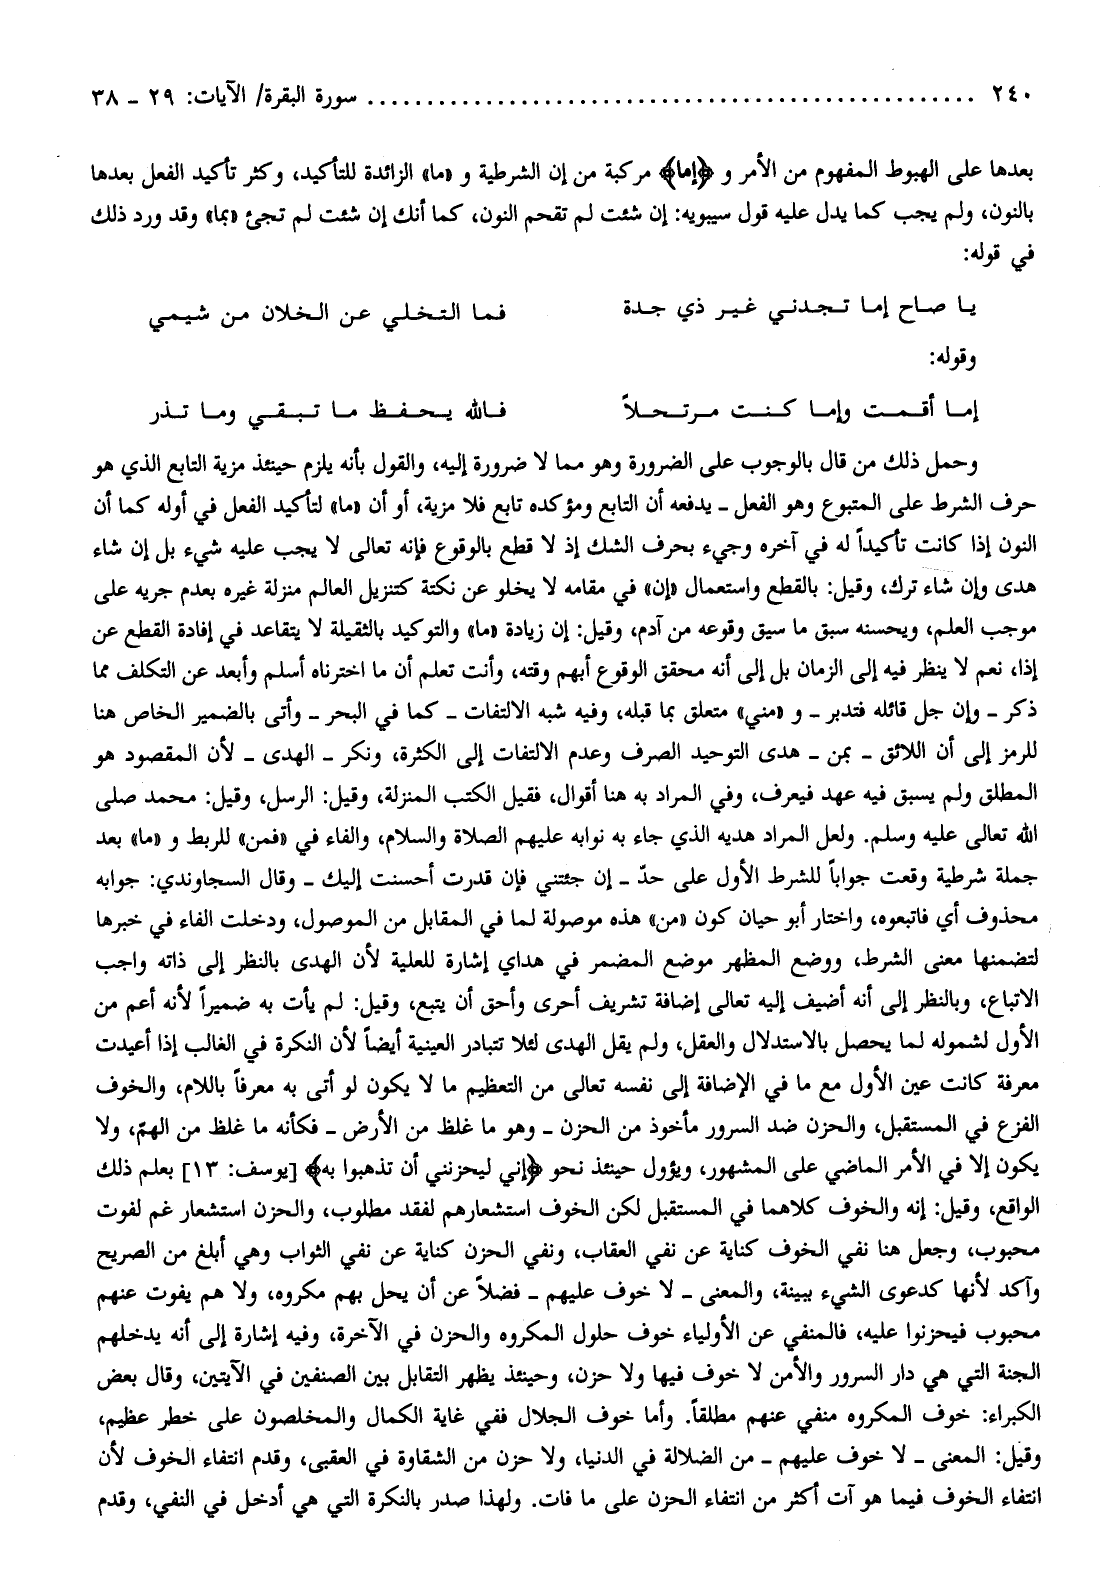 ٢٤٠ ................................................ سورة البقرة/ الآيات: ٢٩ ـ ٣٨
بعدها على الهبوط المفهوم من الأمر و ﴿إما﴾ مركبة من إن الشرطية و «ما» الزائدة للتأكيد، وكثر تأكيد الفعل بعدها
بالنون، ولم يجب كما يدل عليه قول سيبويه: إن شئت لم تقحم النون، كما أنك إن شئت لم تجئ «بما» وقد ورد ذلك
في قوله:
يا صاح إما تجدني غير ذي جدة فما التخلي عن الخلان من شيمي
وقوله:
إما أقمت وإما كنت مرتحلاً فالله يحفظ ما تبقي وما تذر
وحمل ذلك من قال بالوجوب على الضرورة وهو مما لا ضرورة إليه، والقول بأنه يلزم حينئذ مزية التابع الذي هو
حرف الشرط على المتبوع وهو الفعل ـ يدفعه أن التابع ومؤكده تابع فلا مزية، أو أن «ما» لتأكيد الفعل في أوله كما أن
النون إذا كانت تأكيداً له في آخره وجيء بحرف الشك إذ لا قطع بالوقوع فإنه تعالى لا يجب عليه شيء بل إن شاء
هدى وإن شاء ترك، وقيل: بالقطع واستعمال «إن» في مقامه لا يخلو عن نكتة كتنزيل العالم منزلة غيره بعدم جريه على
موجب العلم، ويحسنه سبق ما سيق وقوعه من آدم، وقيل: إن زيادة «ما» والتوكيد بالثقيلة لا يتقاعد في إفادة القطع عن
إذا، نعم لا ينظر فيه إلى الزمان بل إلى أنه محقق الوقوع أبهم وقته، وأنت تعلم أن ما اخترناه أسلم وأبعد عن التكلف مما
ذكر ـ وإن جل قائله فتدبر ـ و «مني» متعلق بما قبله، وفيه شبه الالتفات ـ كما في البحر ـ وأتى بالضمير الخاص هنا
للرمز إلى أن اللائق ـ بمن ـ هدى التوحيد الصرف وعدم الالتفات إلى الكثرة، ونكر ـ الهدى ـ لأن المقصود هو
المطلق ولم يسبق فيه عهد فيعرف، وفي المراد به هنا أقوال، فقيل الكتب المنزلة، وقيل: الرسل، وقيل: محمد صلى
الله تعالى عليه وسلم. ولعل المراد هديه الذي جاء به نوابه عليهم الصلاة والسلام، والفاء في «فمن» للربط و «ما» بعد
جملة شرطية وقعت جواباً للشرط الأول على حدّ ـ إن جئتني فإن قدرت أحسنت إليك ـ وقال السجاوندي: جوابه
محذوف أي فاتبعوه، واختار أبو حيان كون «من» هذه موصولة لما في المقابل من الموصول، ودخلت الفاء في خبرها
لتضمنها معنى الشرط، ووضع المظهر موضع المضمر في هداي إشارة للعلية لأن الهدى بالنظر إلى ذاته واجب
الاتباع، وبالنظر إلى أنه أضيف إليه تعالى إضافة تشريف أحرى وأحق أن يتبع، وقيل: لم يأت به ضميراً لأنه أعم من
الأول لشموله لما يحصل بالاستدلال والعقل، ولم يقل الهدى لئلا تتبادر العينية أيضاً لأن النكرة في الغالب إذا أعيدت
معرفة كانت عين الأول مع ما في الإضافة إلى نفسه تعالى من التعظيم ما لا يكون لو أتى به معرفاً باللام، والخوف
الفزع في المستقبل، والحزن ضد السرور مأخوذ من الحزن ـ وهو ما غلظ من الأرض ـ فكأنه ما غلظ من الهمّ، ولا
يكون إلا في الأمر الماضي على المشهور، ويؤول حينئذ نحو ﴿إني ليحزنني أن تذهبوا به﴾ [يوسف: ١٣] بعلم ذلك
الواقع، وقيل: إنه والخوف كلاهما في المستقبل لكن الخوف استشعارهم لفقد مطلوب، والحزن استشعار غم لفوت
محبوب، وجعل هنا نفي الخوف كناية عن نفي العقاب، ونفي الحزن كناية عن نفي الثواب وهي أبلغ من الصريح
وآكد لأنها كدعوى الشيء ببينة، والمعنى ـ لا خوف عليهم ـ فضلاً عن أن يحل بهم مكروه، ولا هم يفوت عنهم
محبوب فيحزنوا عليه، فالمنفي عن الأولياء خوف حلول المكروه والحزن في الآخرة، وفيه إشارة إلى أنه يدخلهم
الجنة التي هي دار السرور والأمن لا خوف فيها ولا حزن، وحينئذ يظهر التقابل بين الصنفين في الآيتين، وقال بعض
الكبراء: خوف المكروه منفي عنهم مطلقاً. وأما خوف الجلال ففي غاية الكمال والمخلصون على خطر عظيم،
وقيل: المعنى ـ لا خوف عليهم ـ من الضلالة في الدنيا، ولا حزن من الشقاوة في العقبى، وقدم انتفاء الخوف لأن
انتفاء الخوف فيما هو آت أكثر من انتفاء الحزن على ما فات. ولهذا صدر بالنكرة التي هي أدخل في النفي، وقدم